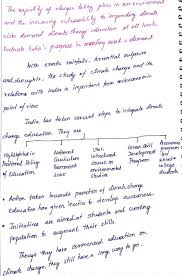 The rapidity of changes taking place in our environment
and the increasing vulnerability to impending climate
risks demand climate change education at all levels.
Evaluate India's progress in meeting such a demand.
With erratic rainfalls, torrential
and droughts, the study of climate change and its
relations with India is important from socioeconomic
point of view.
India has taken several steps to integrate climate
change education. They are
Highlighted in National Policy of Education
National Curriculum Framework
UGC introduced course on environmental studies
Green Skill Development Program
programs for school & college students
• Action taken towards promotion of climate change
education has given results to develop awareness.
• Initiatives are aimed at students and working
population to augment their skills.
Though they have convened education on
climate change, they still have a long way to go.